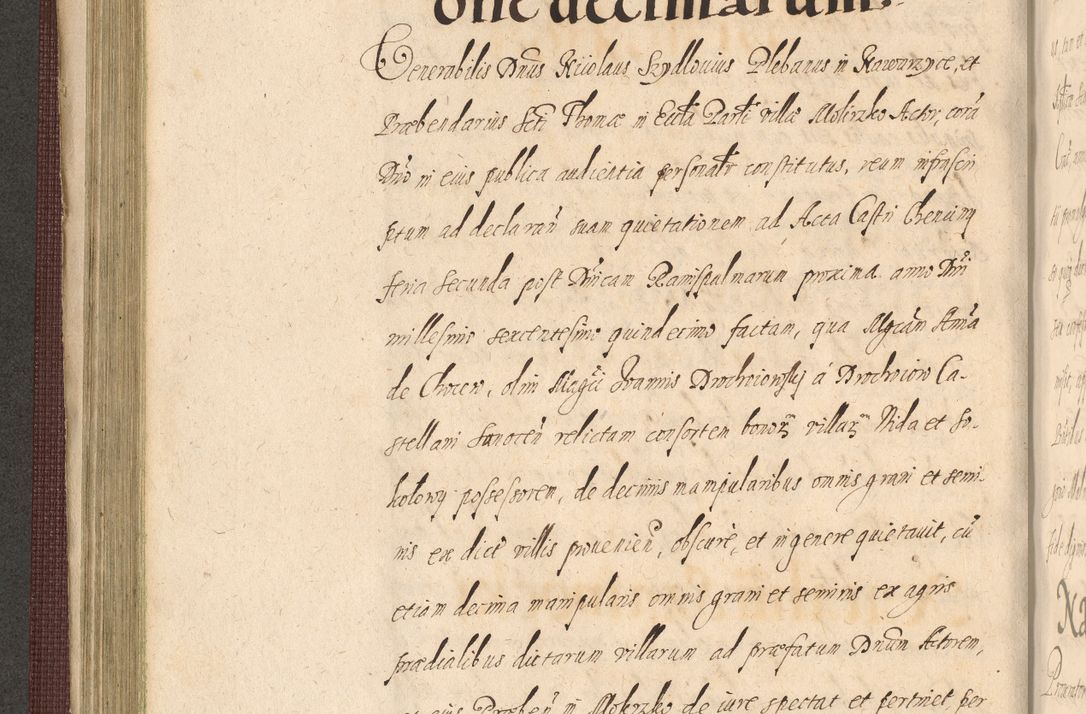 one decimarum.
Venerabilis Dnus Nicolaus Szydlovius Plebanus in Kawarzyce, et
Præbendarius Scti Thomæ in Eccla Parli villæ Mokrzko Actor, corā
Dno in eius publica audientia personalr constitutus, reum infrascri
ptum ad declaran suam quietationem ad Acta Castri Chencinꝫ
feria secunda post Dnicam Ramispalmarum proxima anno Dni
millesimo sexcentesimo quindecimo factam, qua Mgcam Annā
de Chocen, olim Mgci Joannis Drochoiowskj á Drochoiow Ca-
stellani Sanocen relictam consortem bonorꝫ villarꝫ Nida et So-
kołowy possessorem, de decimis manipularibus omnis grani et semi-
nis ex dict villis provenien, obscurè, et in genere quietavit, cū
etiam decima manipularis omnis grani et seminis ex agris
prædialibus dictarum villarum ad præfatum Dnum Actorem,
et eius Præben in Mokrzko de iure spectat et pertinet per